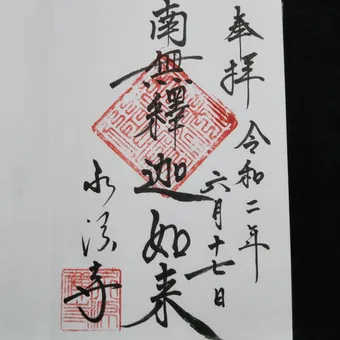 奉拝
令和二年
六月十七日
南無釋迦如来
寺